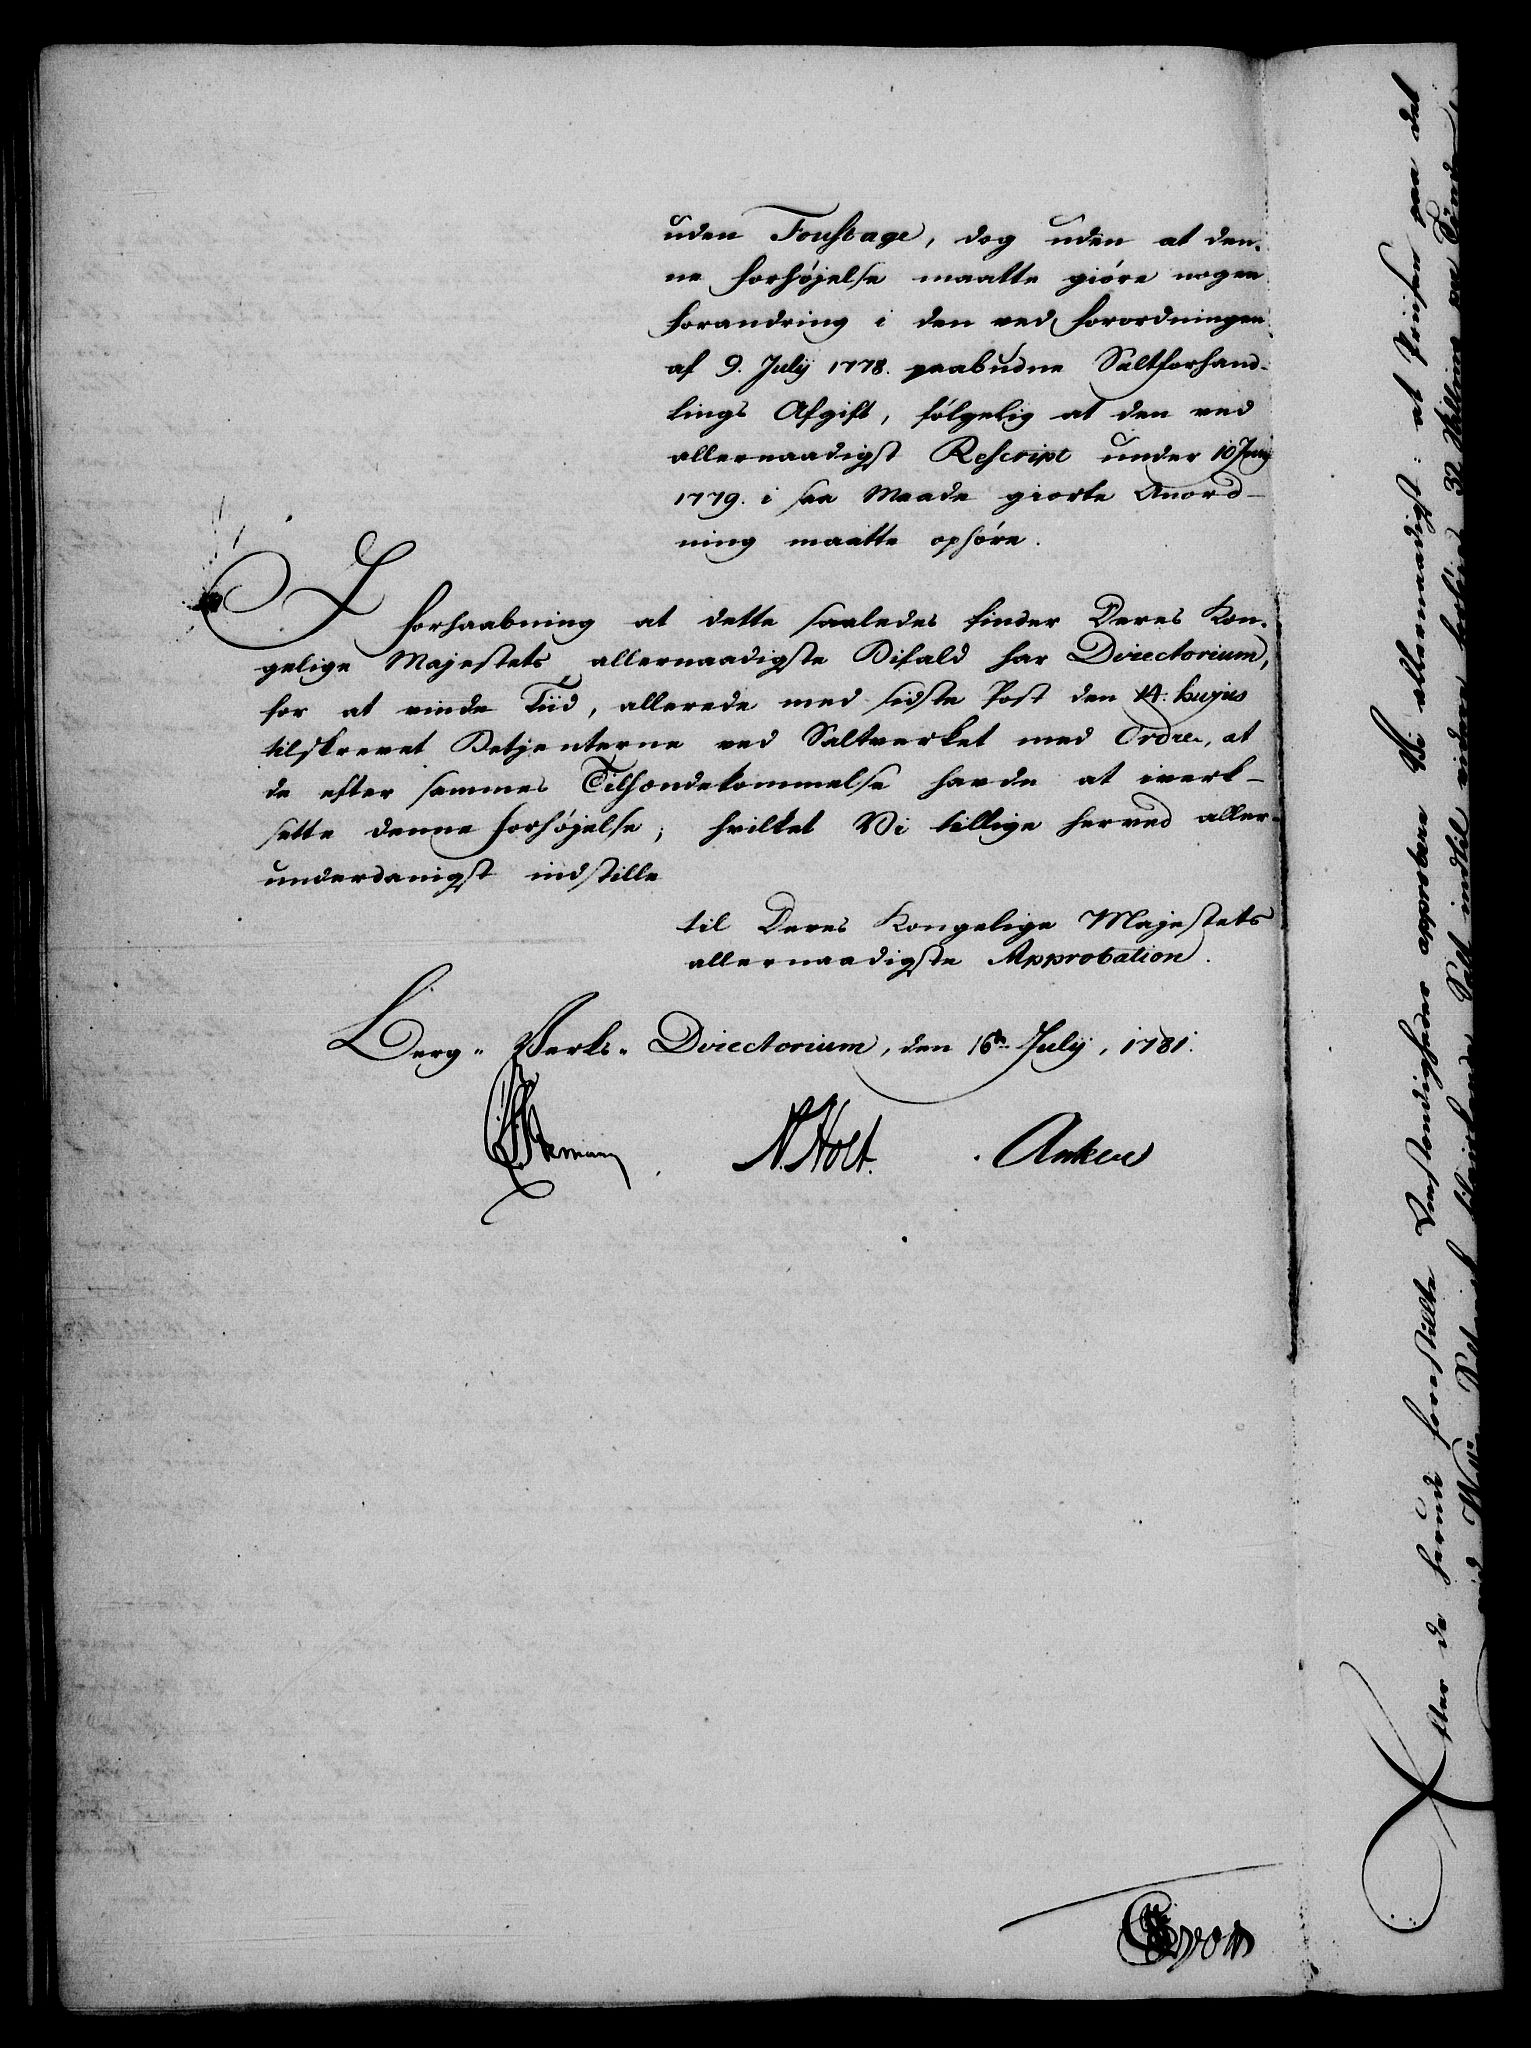 uden Foustage, dog uden at den-
ne forhøjelse maatte giøre nogen
forandring i den ved forordningen
af 9. July 1778. paabudne Saltforhand-
lings Afgift, følgelig at den ved
allernaadigst Rescript under 10 Juny
1779. i saa Maade giorte Anord-
ning maatte ophøre.
I forhaabning at dette saaledes finder Deres Kon-
gelige Majestets allernaadigste Bifald har Directorium,
for at vinde Tiid, allerede med sidste Post den 14. hujus
tilskrevet Betjenterne ved Saltverket med Ordre, at
de efter sammes Tilhændekommelse havde at iverk-
sette denne forhøjelse; hvilket Vi tillige herved aller-
underdanigst indstille
til Deres Kongelige Majestets
allernaadigste Approbation.
Berg- Verks- Directorium, den 16de July, 1781.
N. Holt. Anker
Efter de herved forestilte Omstændigheder approbere Vi allernaadigst: at Prisen paa det
ved Wallöe Saltverk tilvirkende Salt indtil videre forhöies 32 skilling paa Tønden